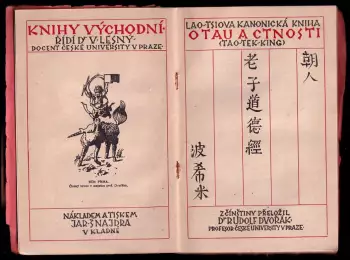 KNIHY VÝCHODNÍ·
ŘÍDÍ Dr V·LESNÝ·
DOCENT ČESKÉ UNIVERSITY V PRAZE·
NÁKLADEM A TISKEM
JAR·ŠNAJDRA
V KLADNĚ
LAO-TSIOVA KANONICKÁ KNIHA
O TAU A CTNOSTI
(TAO-TEK-KING)
朝人
老子道德經
波希米
Z ČÍNŠTINY PŘELOŽIL
Dr RUDOLF DVOŘÁK·
PROFESOR ČESKÉ UNIVERSITY V PRAZE·